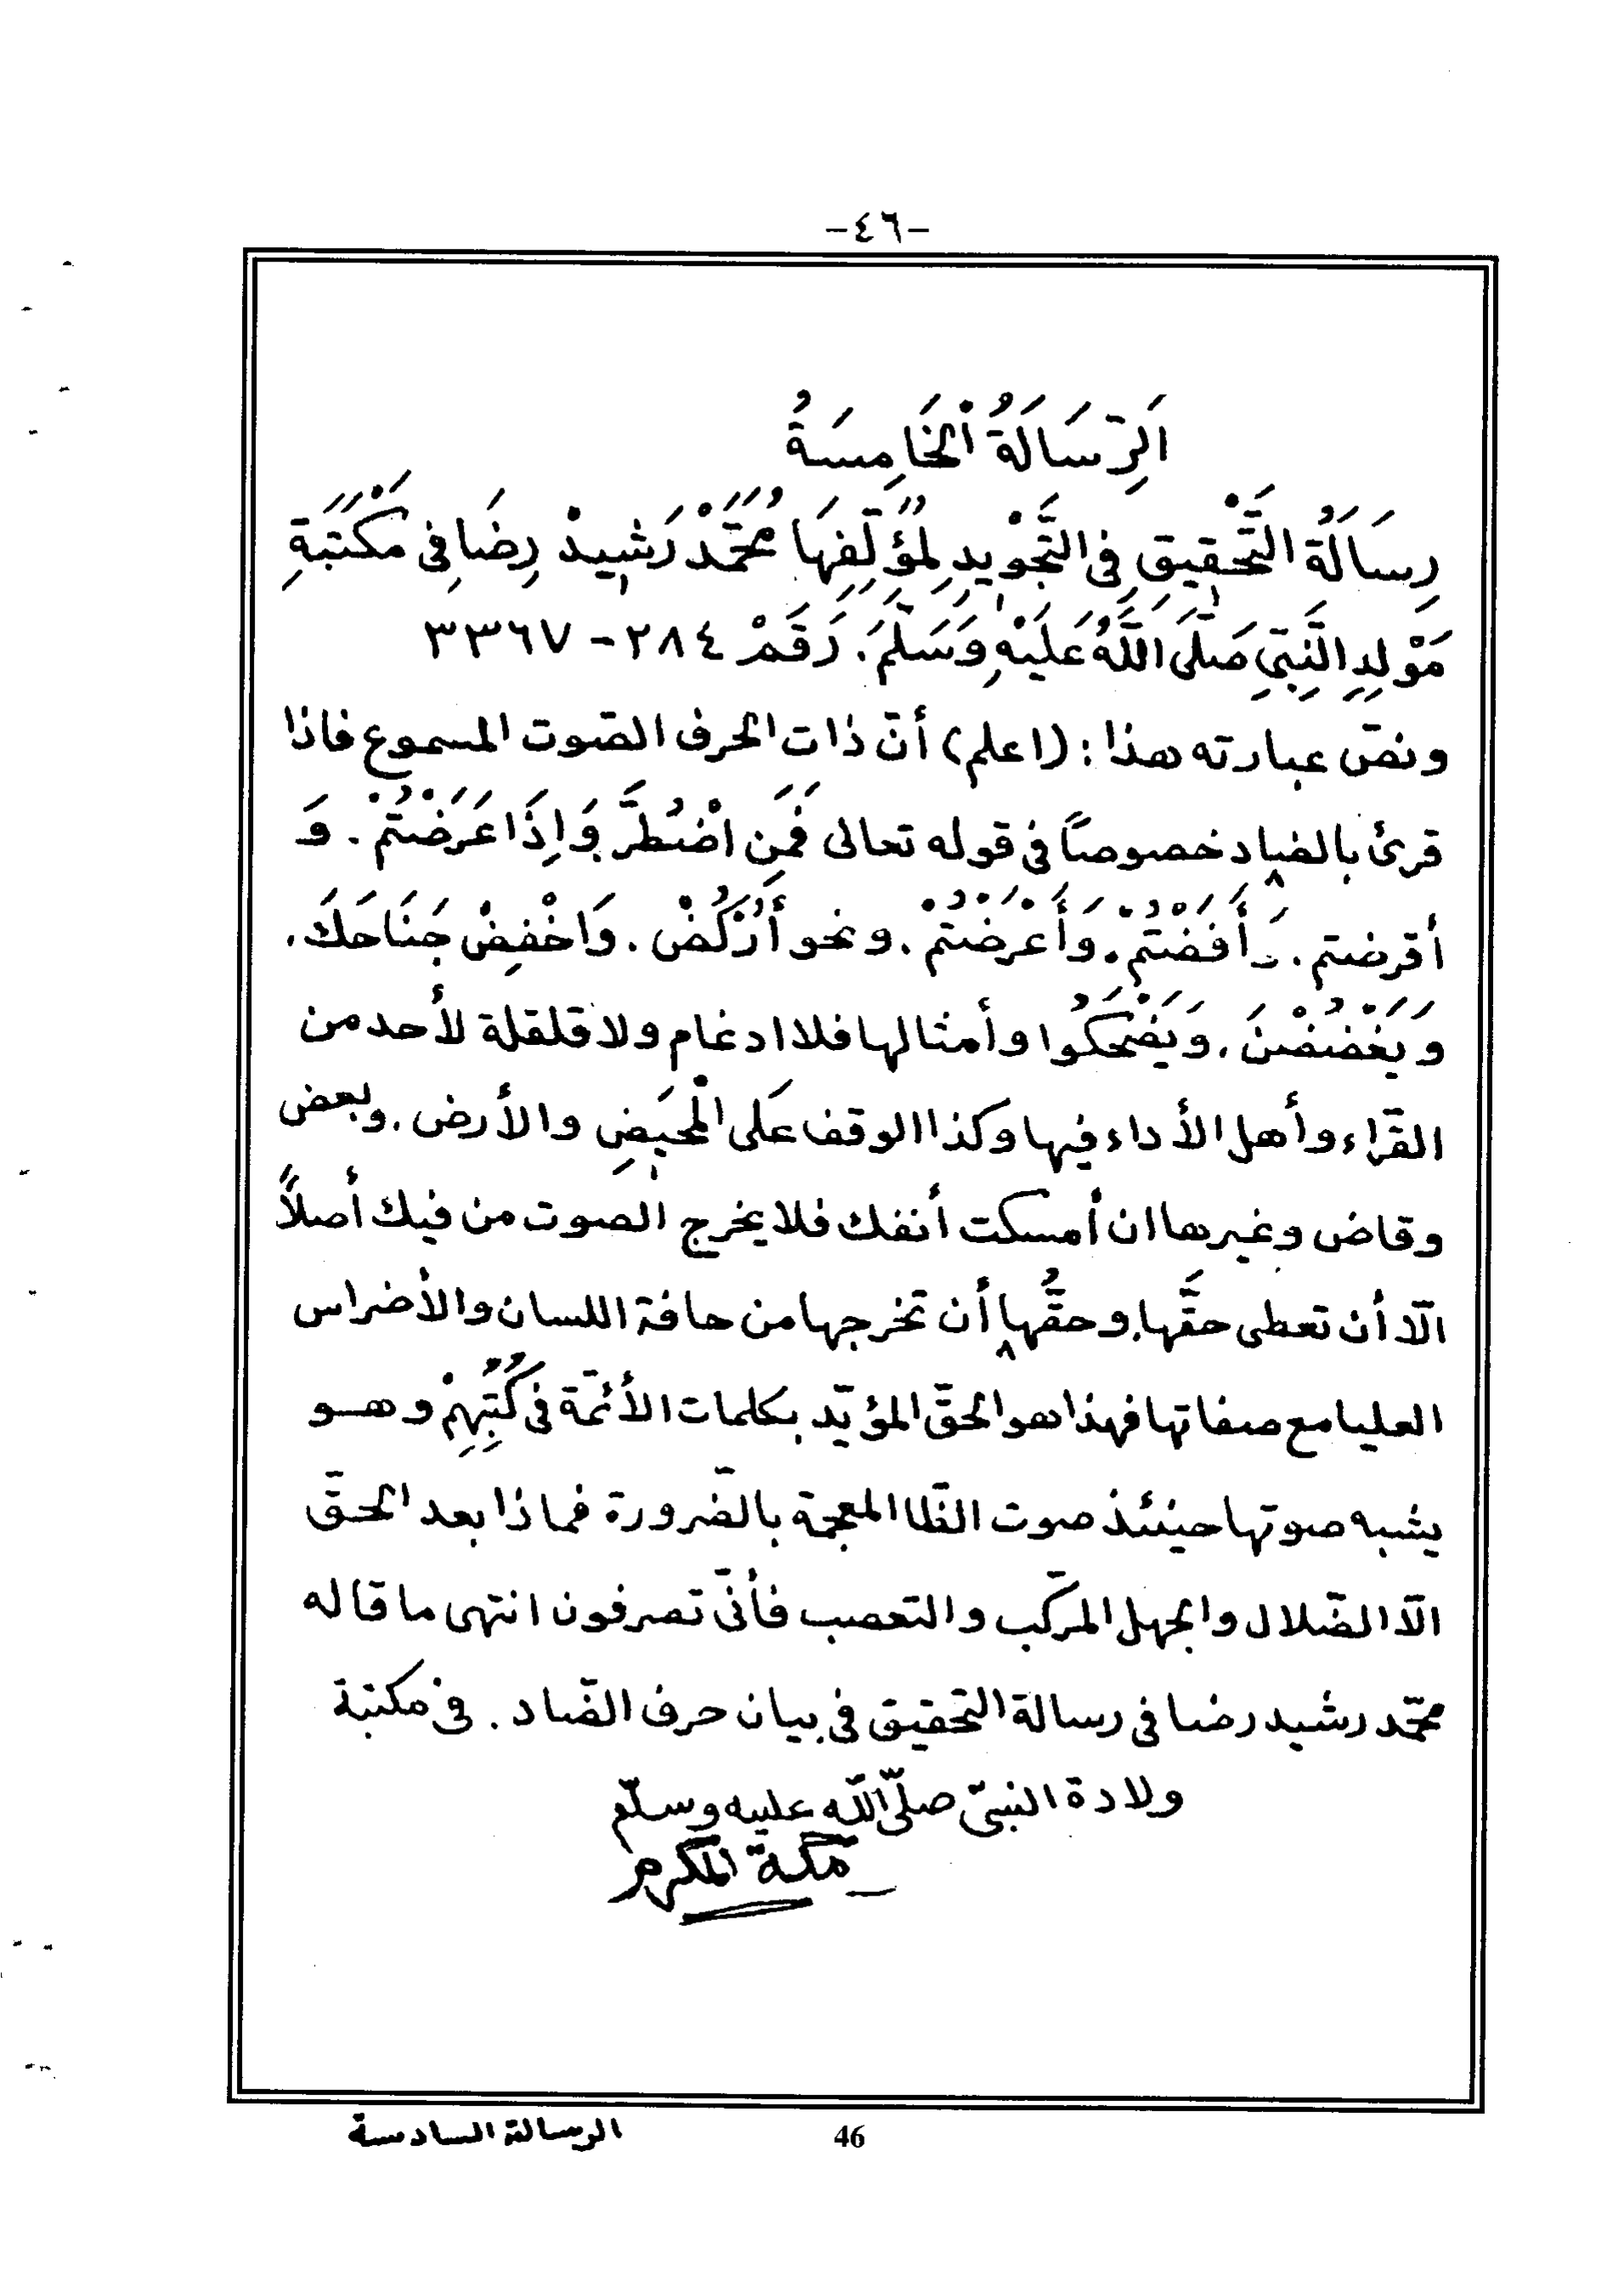 -٤٦-
اَلرِّسَالَةُ الْخَامِسَةُ
رِسَالَةُ التَّحْقِيقِ فِي التَّجْوِيدِ لِمُؤَلِّفِهَا مُحَمَّدْ رَشِيدْ رِضَا فِي مَكْتَبَةِ
مَوْلِدِ النَّبِيِّ صَلَّى اللَّهُ عَلَيْهِ وَسَلَّمَ. رَقَمْ ٢٨٤ - ٣٣٦٧
ونصّ عبارته هذا : (اعلم) أنّ ذات الحرف الصّوت المسموع فاذا
قرئ بالضاد خصوصاً في قوله تعالى فَمَنِ اضْطُرَّ وَاِذَا عَرَضْتُمْ . وَ
أقرضتم . أَفَضْتُمْ . وَأَعْرَضْتُمْ . ونحو أُرْكُضْ . وَاخْفِضْ جَنَاحَكَ .
وَيَغْضُضْنَ . وَيَضْحَكُوا وأمثالها فلا ادغام ولا قلقلة لأحد من
القرّاء وأهل الأداء فيها وكذا الوقف عَلَى الْمَحِيضِ والأرض . وبعض
وقاض وغيرها ان أمسكت أنفك فلا يخرج الصوت من فيك أصلاً
الّا أن تعطى حقَّها. وحقُّها أن تخرجها من حافة اللسان والأضراس
العليا مع صفاتها فهذا هو الحقّ المؤيّد بكلمات الأئمّة في كُتُبِهِمْ وهو
يشبه صوتها حينئذ صوت الظّا المعجمة بالضّرورة فماذا بعد الحقّ
الّا الضّلال والجهل المركّب والتعصب فأنّى تصرفون انتهى ما قاله
محمّد رشيد رضا في رسالة التحقيق في بيان حرف الضّاد . في مكتبة
ولادة النبيّ صلّى اللّه عليه وسلّم
مكّة المكرم
46
الرسالة السادسة